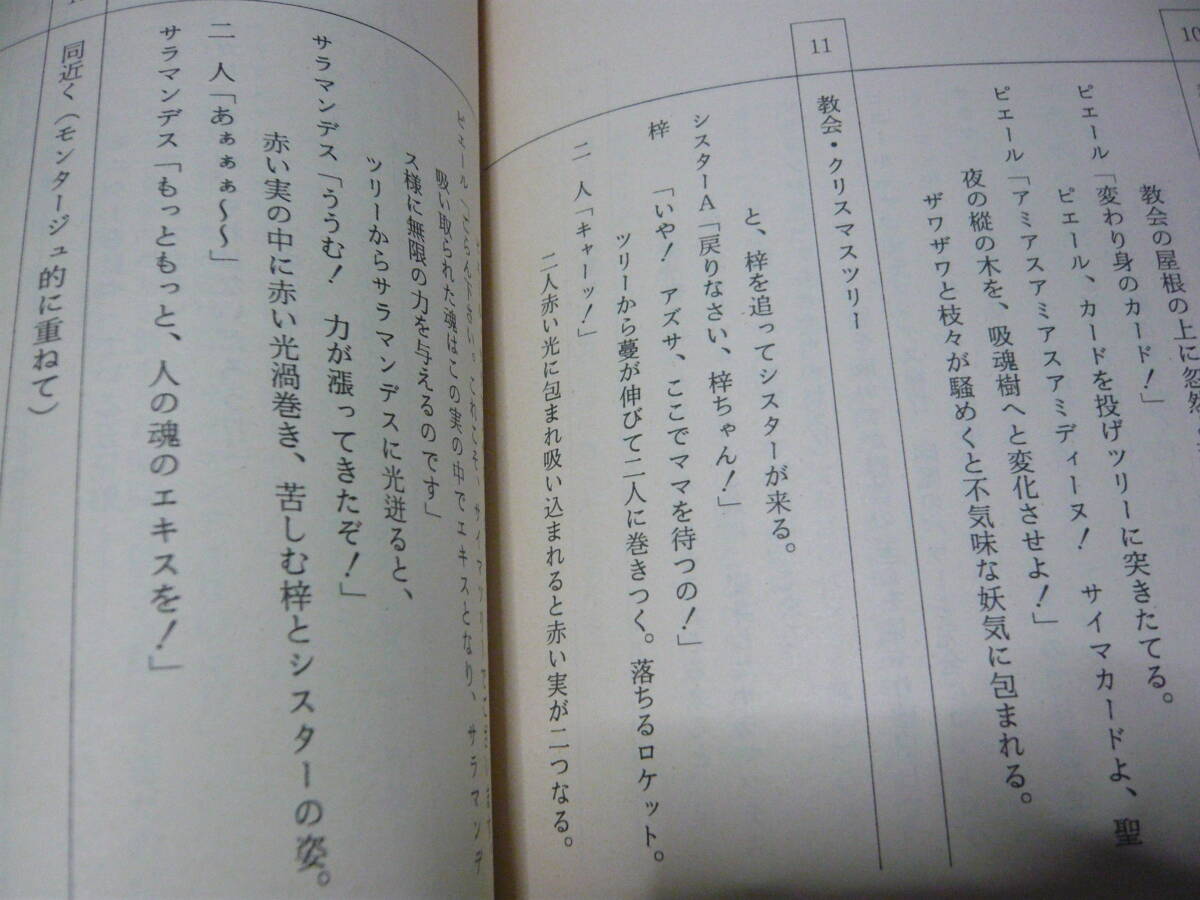 10
教会の屋根の上に忽然
ピエール「変わり身のカード！」
ピエール、カードを投げツリーに突きたてる。
ピエール「アミアスアミアスアミディーヌ！　サイマカードよ、聖
夜の樅の木を、吸魂樹へと変化させよ！」
ザワザワと枝々が騒めくと不気味な妖気に包まれる。
11
教会・クリスマスツリー
と、梓を追ってシスターが来る。
シスターA「戻りなさい、梓ちゃん！」
梓　「いや！　アズサ、ここでママを待つの！」
ツリーから蔓が伸びて二人に巻きつく。落ちるロケット。
二　人「キャーッ！」
二人赤い光に包まれ吸い込まれると赤い実が二つなる。
ピエール「ごらん下さい。これこそ、サイマツリー
吸い取られた魂はこの実の中でエキスとなり、サラマンデ
ス様に無限の力を与えるのです」
ツリーからサラマンデスに光迸ると、
サラマンデス「ううむ！　力が漲ってきたぞ！」
赤い実の中に赤い光渦巻き、苦しむ梓とシスターの姿。
二　人「あぁぁぁ～～」
サラマンデス「もっともっと、人の魂のエキスを！」
同近く（モンタージュ的に重ねて）